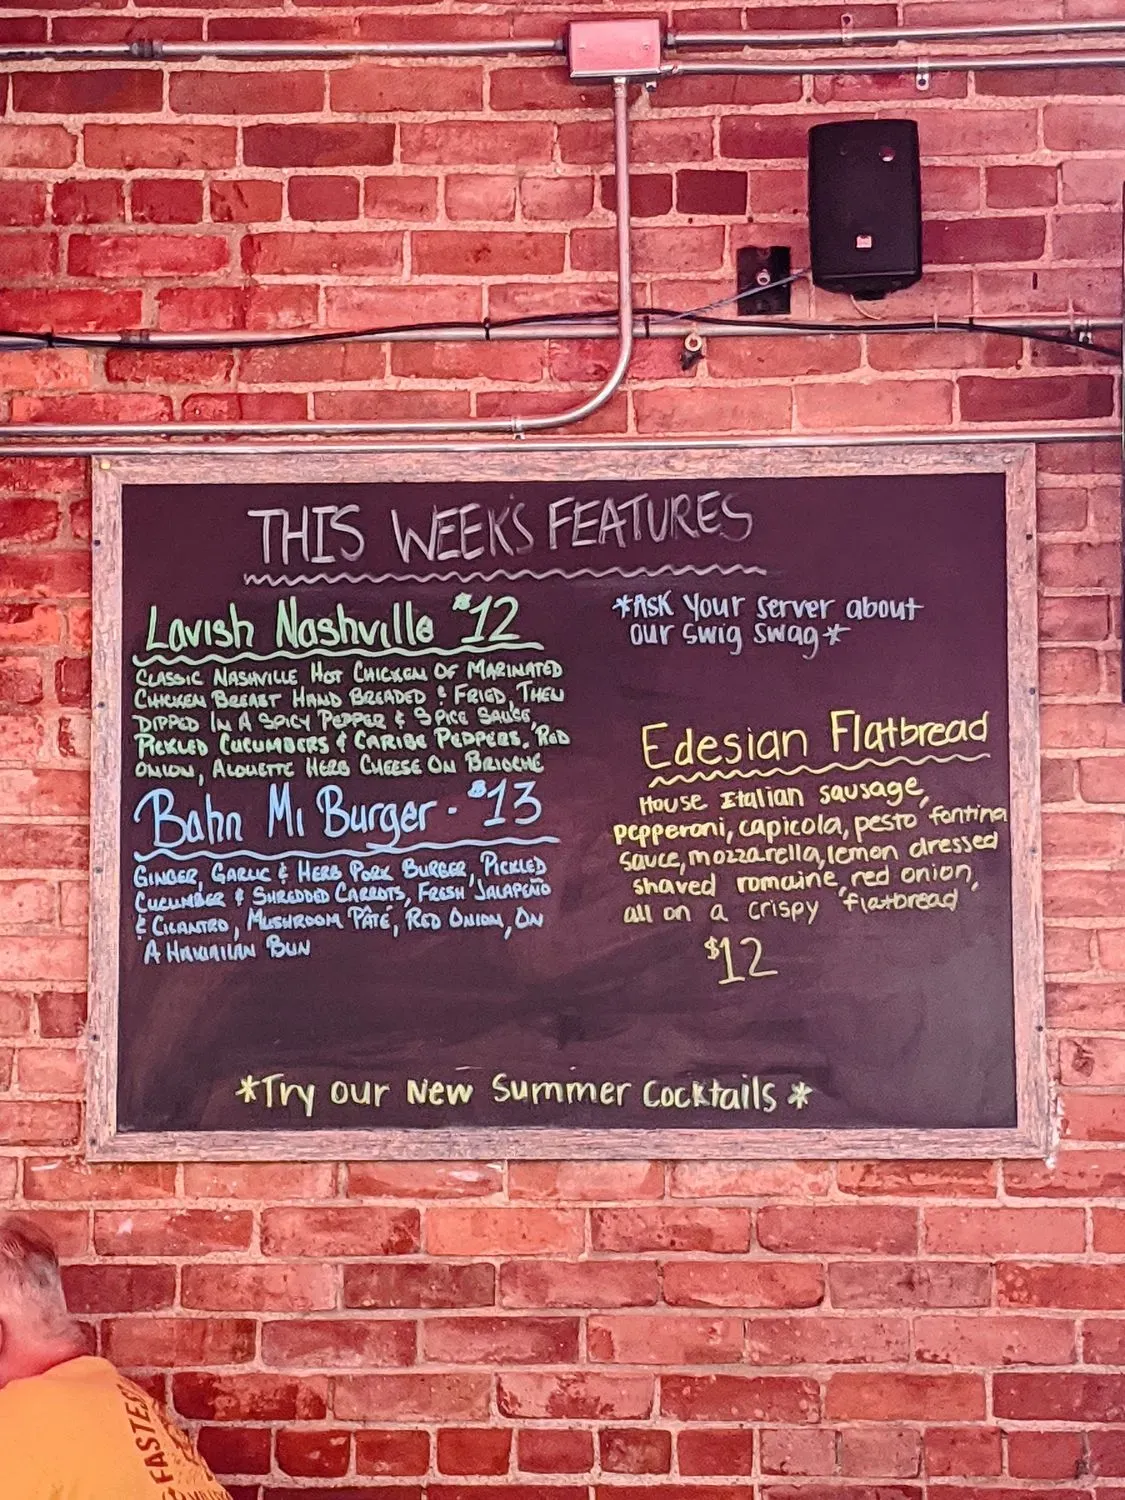 THIS WEEK'S FEATURES
Lavish Nashville $12
CLASSIC NASHVILLE HOT CHICKEN OF MARINATED
CHICKEN BREAST HAND BREADED & FRIED, THEN
DIPPED IN A SPICY PEPPER & SPICE SAUSE,
PICKLED CUCUMBERS & CARIBE PEPPERS, RED
ONION, ALOUETTE HERB CHEESE ON BRIOCHE
Bahn Mi Burger - $13
GINGER, GARLIC & HERB PORK BURGER, PICKLED
CUCUMBER & SHREDDED CARROTS, FRESH JALAPEÑO
& CILANTRO, MUSHROOM PÂTÉ, RED ONION, ON
A HAWAIIAN BUN
*Ask Your server about
our swig swag*
Edesian Flatbread
House Italian sausage,
pepperoni, capicola, pesto fontina
sauce, mozzarella, lemon dressed
shaved romaine, red onion,
all on a crispy flatbread
$12
*Try our New Summer Cocktails*
FASTE